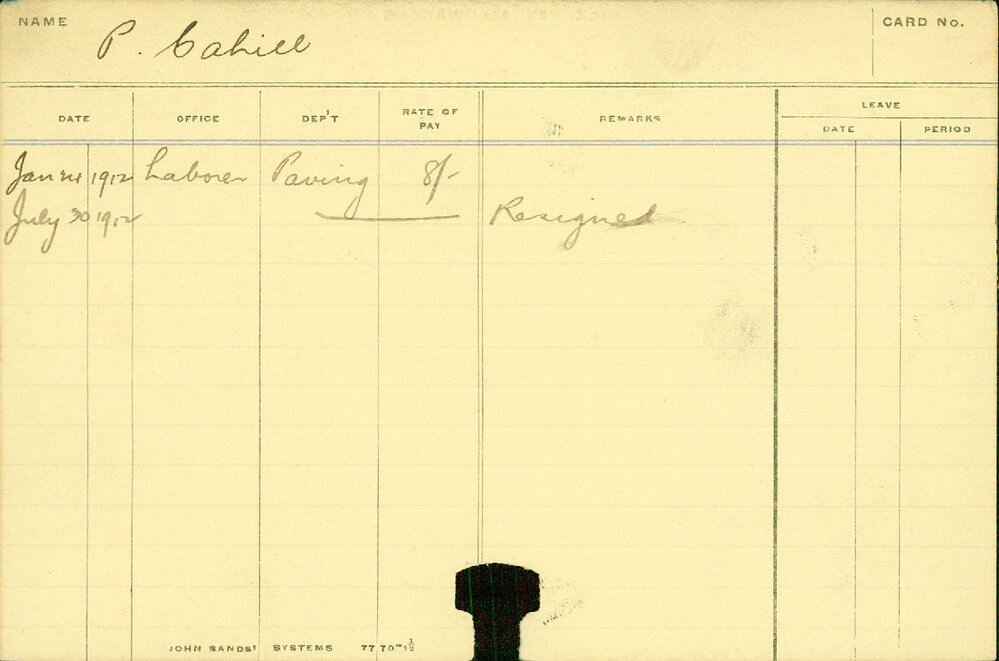 NAME P. Cahill CARD No.
DATE OFFICE DEP'T RATE OF PAY REMARKS LEAVE
DATE PERIOD
Jan 24 1912 Laborer Paving 8/-
July 30 1912 Resigned
JOHN SANDS' SYSTEMS 77 70